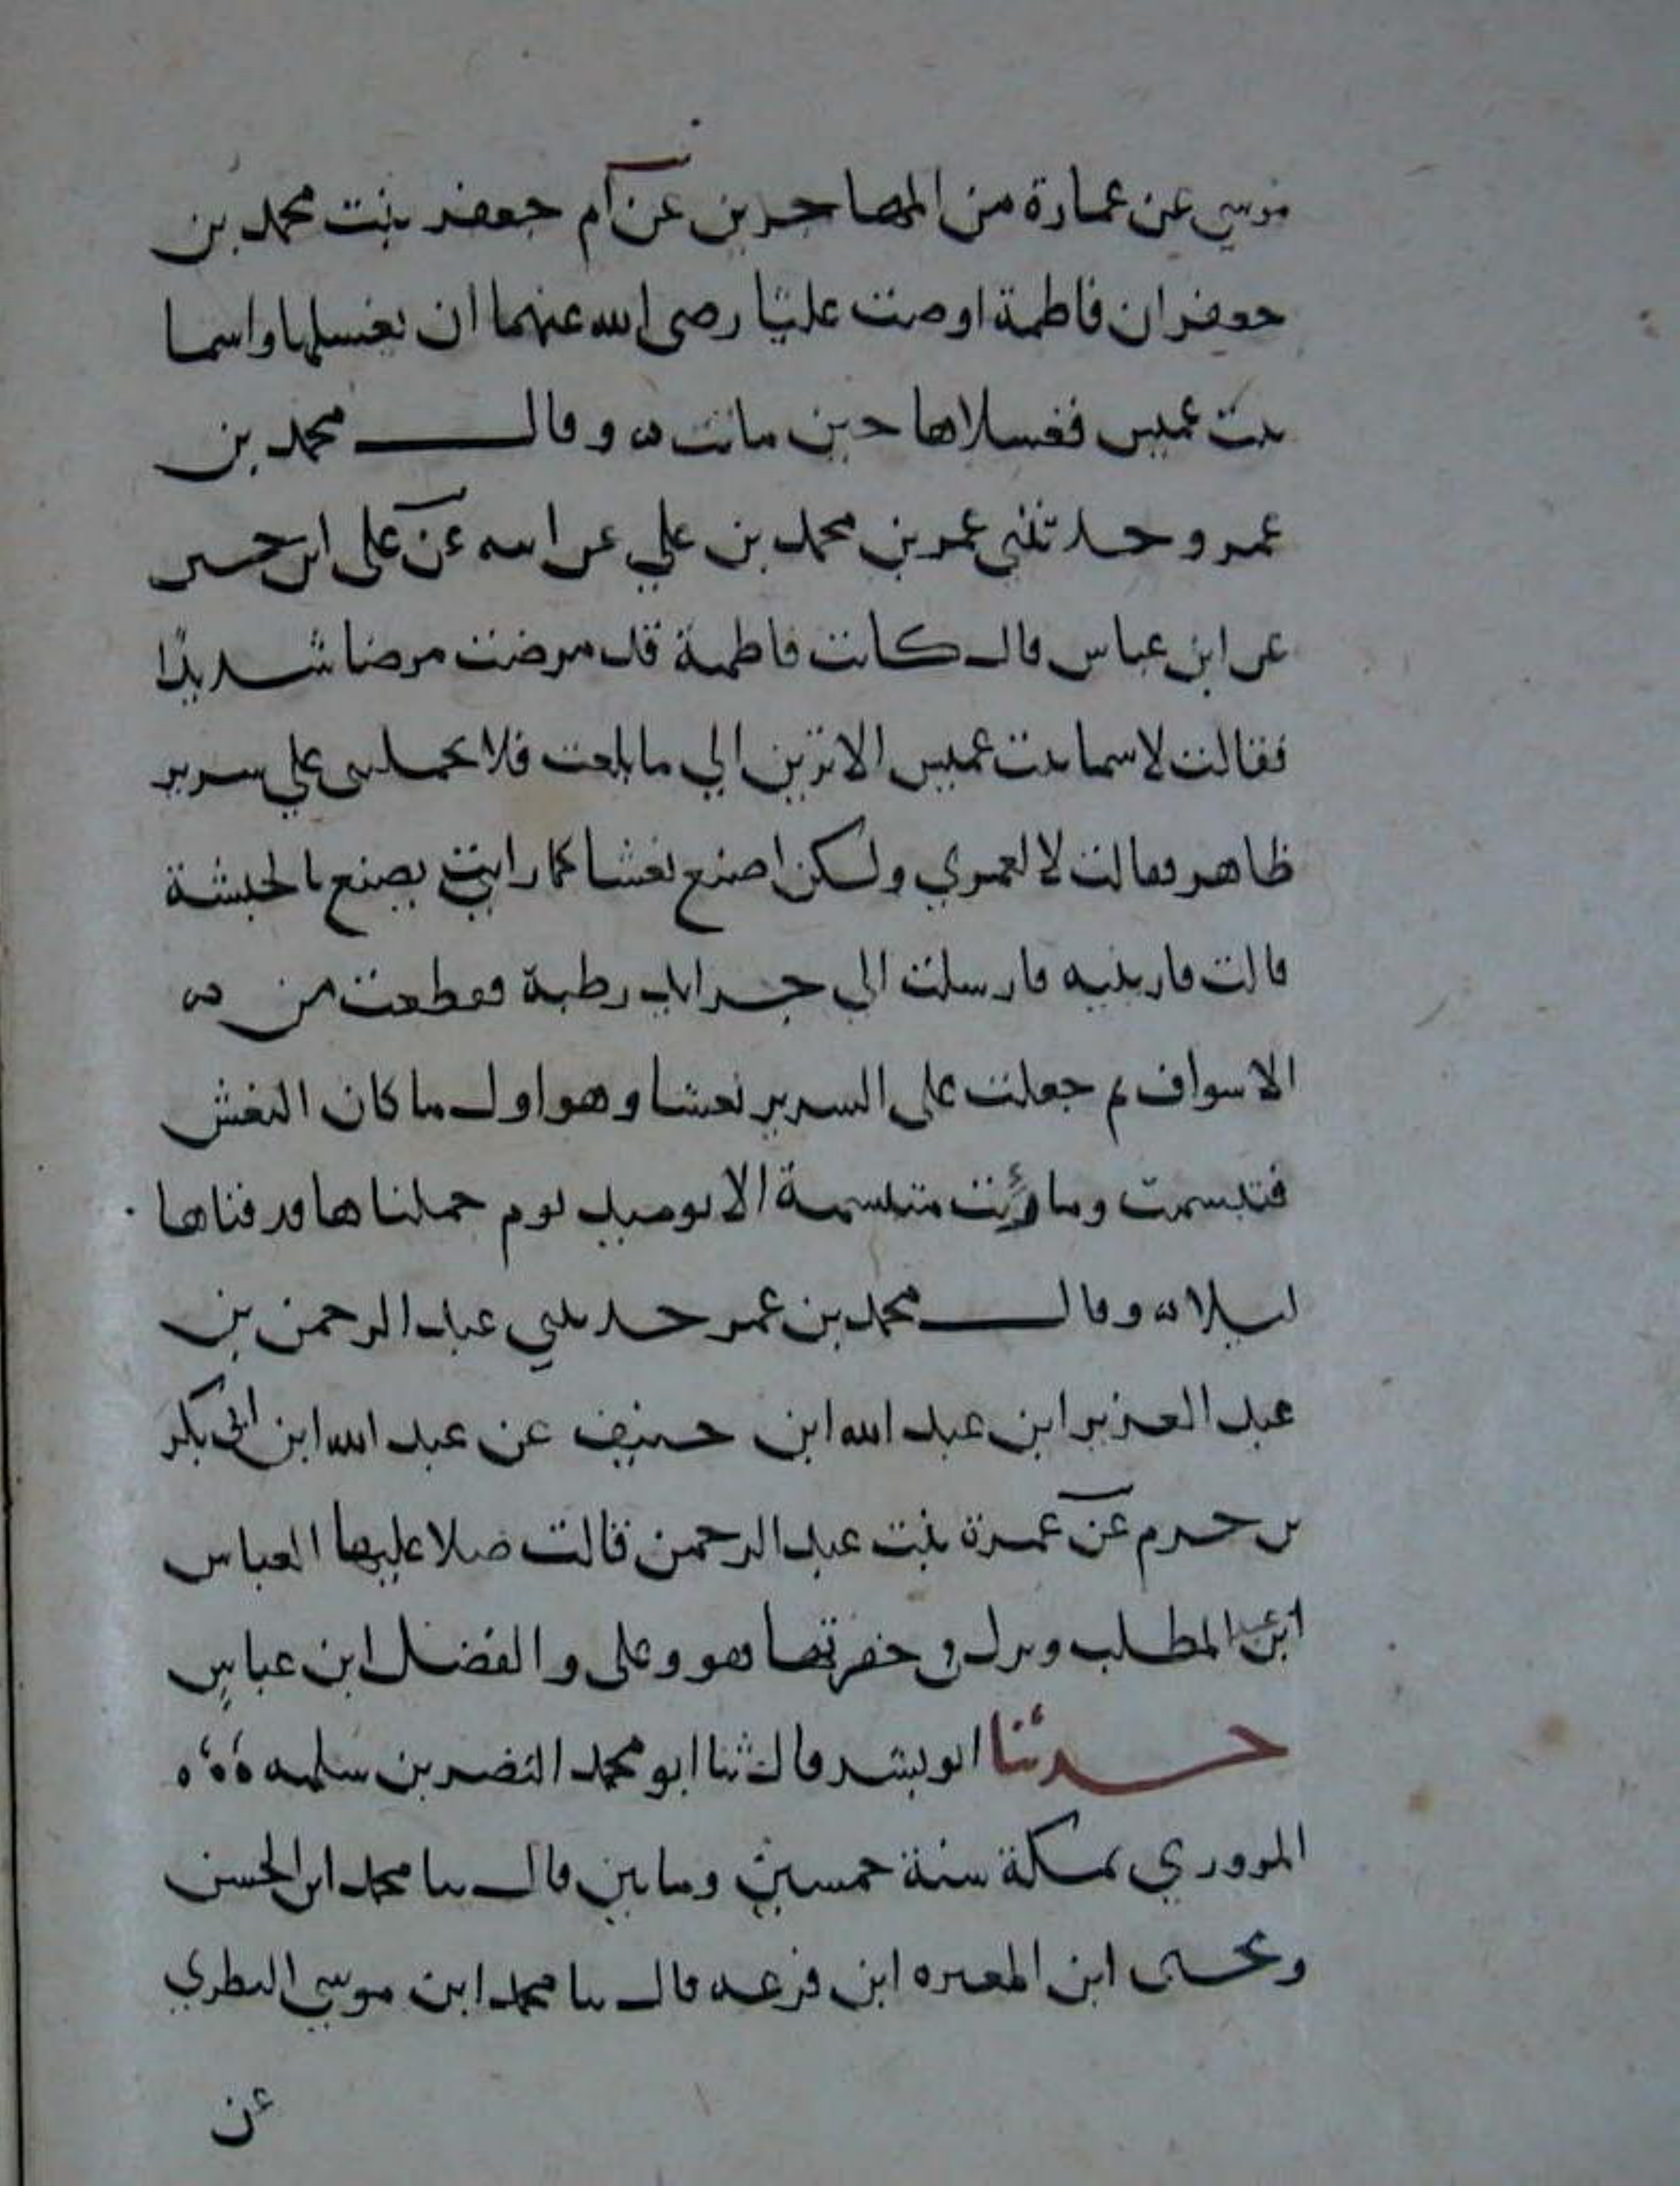 موسي عن عمارة من المهاجرين عن ام جعفر بنت محمد بن
جعفر ان فاطمة اوصت عليًا رضى الله عنهما ان يغسلها واسما
بنت عميس فغسلاها حين ماتت ه وقال محمد بن
عمر وحدثني عمر بن محمد بن علي عن ابيه عن على ابن حسين
عن ابن عباس قال كانت فاطمة قد مرضت مرضا شديدًا
فقالت لاسما بنت عميس الا ترين الي ما بلغت فلا تحمليني علي سرير
ظاهر فقالت لا لعمري ولكن اصنع نعشا كما رايت يصنع بالحبشة
قالت فارينيه فارسلت الي جرايد رطبة فقطعت من ه
الاسواف ثم جعلت على السرير نعشا وهو اول ما كان النعش
فتبسمت وما رئت متبسمة الا يوميد يوم حملناها ودفناها
ليلا ه وقال محمد بن عمر حدثني عبد الرحمن بن
عبد العزيز ابن عبد الله ابن حنيف عن عبد الله ابن ابي بكر
بن حزم عن عمرة بنت عبد الرحمن قالت صلا عليها العباس
ابن عبد المطلب ونزل في حفرتها هو وعلى والفضل ابن عباس
حدثنا ابو بشر قال ثنا ابو محمد النضر بن سلمه ه ه ه
المروري بمكة سنة خمسين ومايتين قال ثنا محمد ابن الحسن
ويحيى ابن المغيره ابن قزعه قال ثنا محمد ابن موسي الفطري
عن